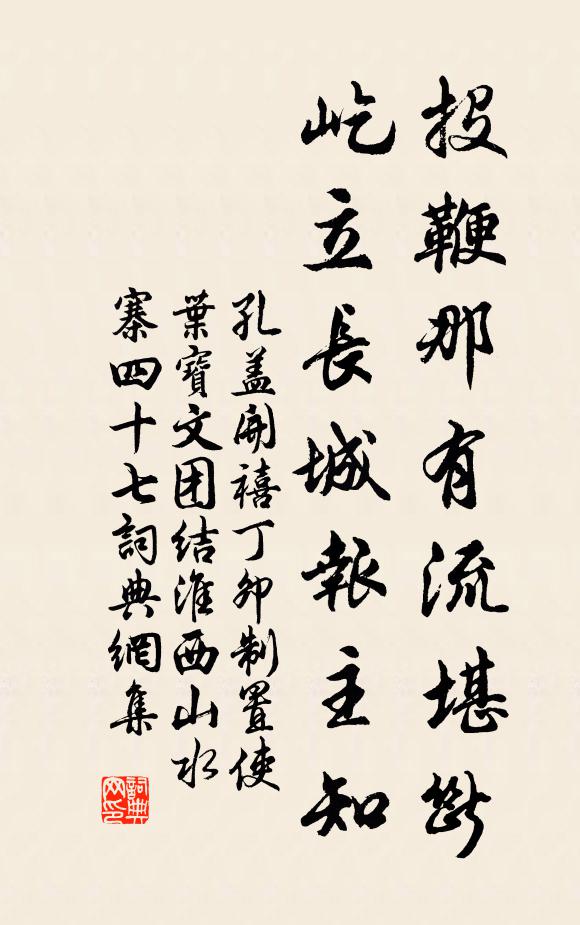 投鞭那有流堪斷
屹立長城報主知
孔盖開禧丁卯制置使
葉寶文团结淮西山水
寨四十七詞典網集
詞典
网印